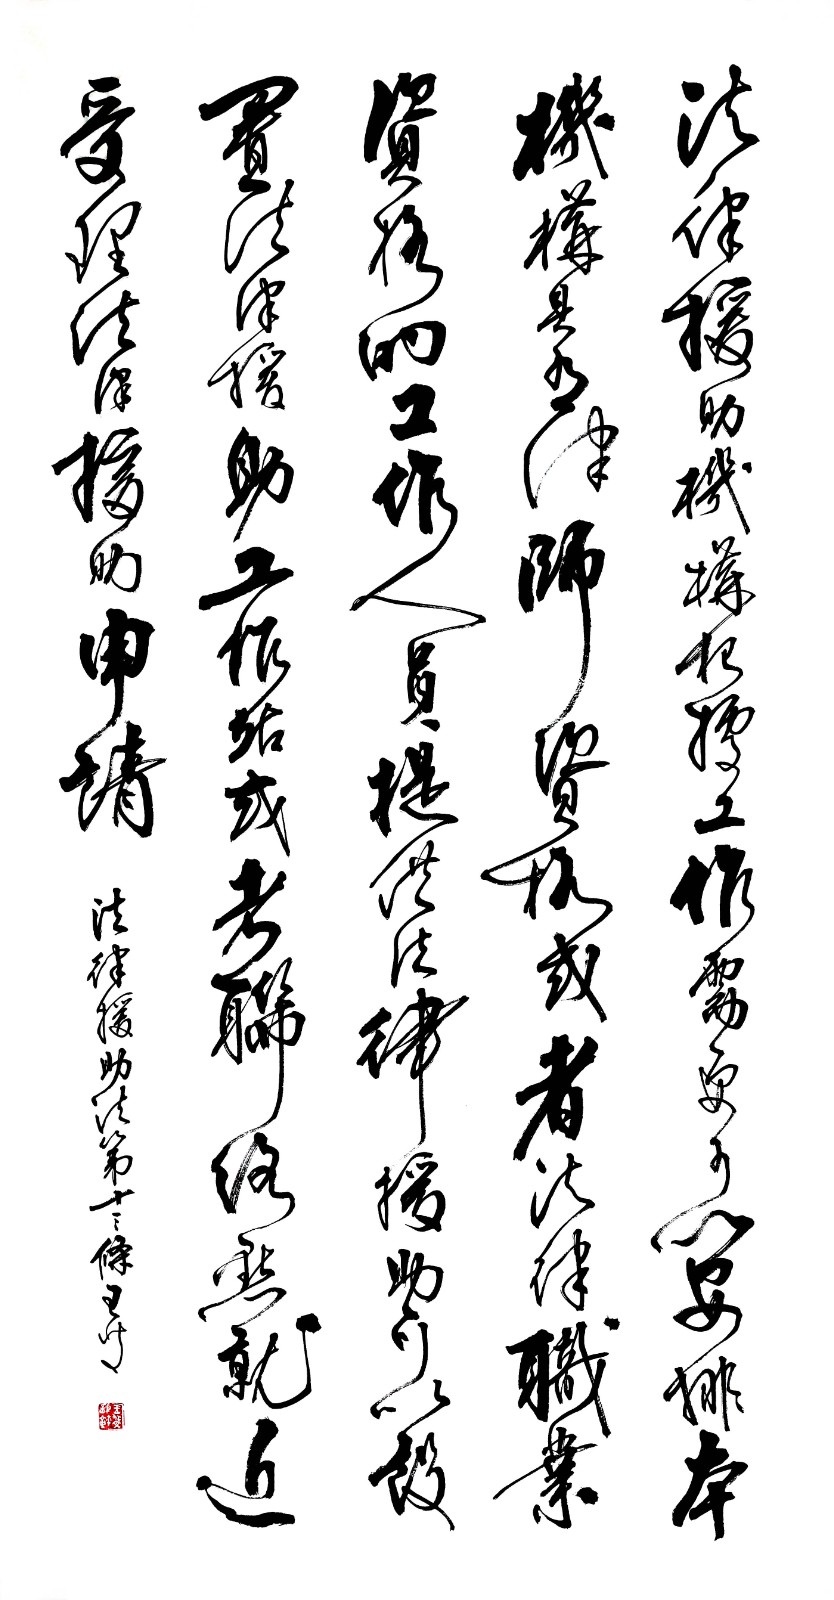 法律援助機構根據工作需要可以安排本
機構具有律師資格或者法律職業
資格的工作人員提供法律援助可以設
置法律援助工作站或者聯絡點就近
受理法律援助申請
法律援助法第十三條 王